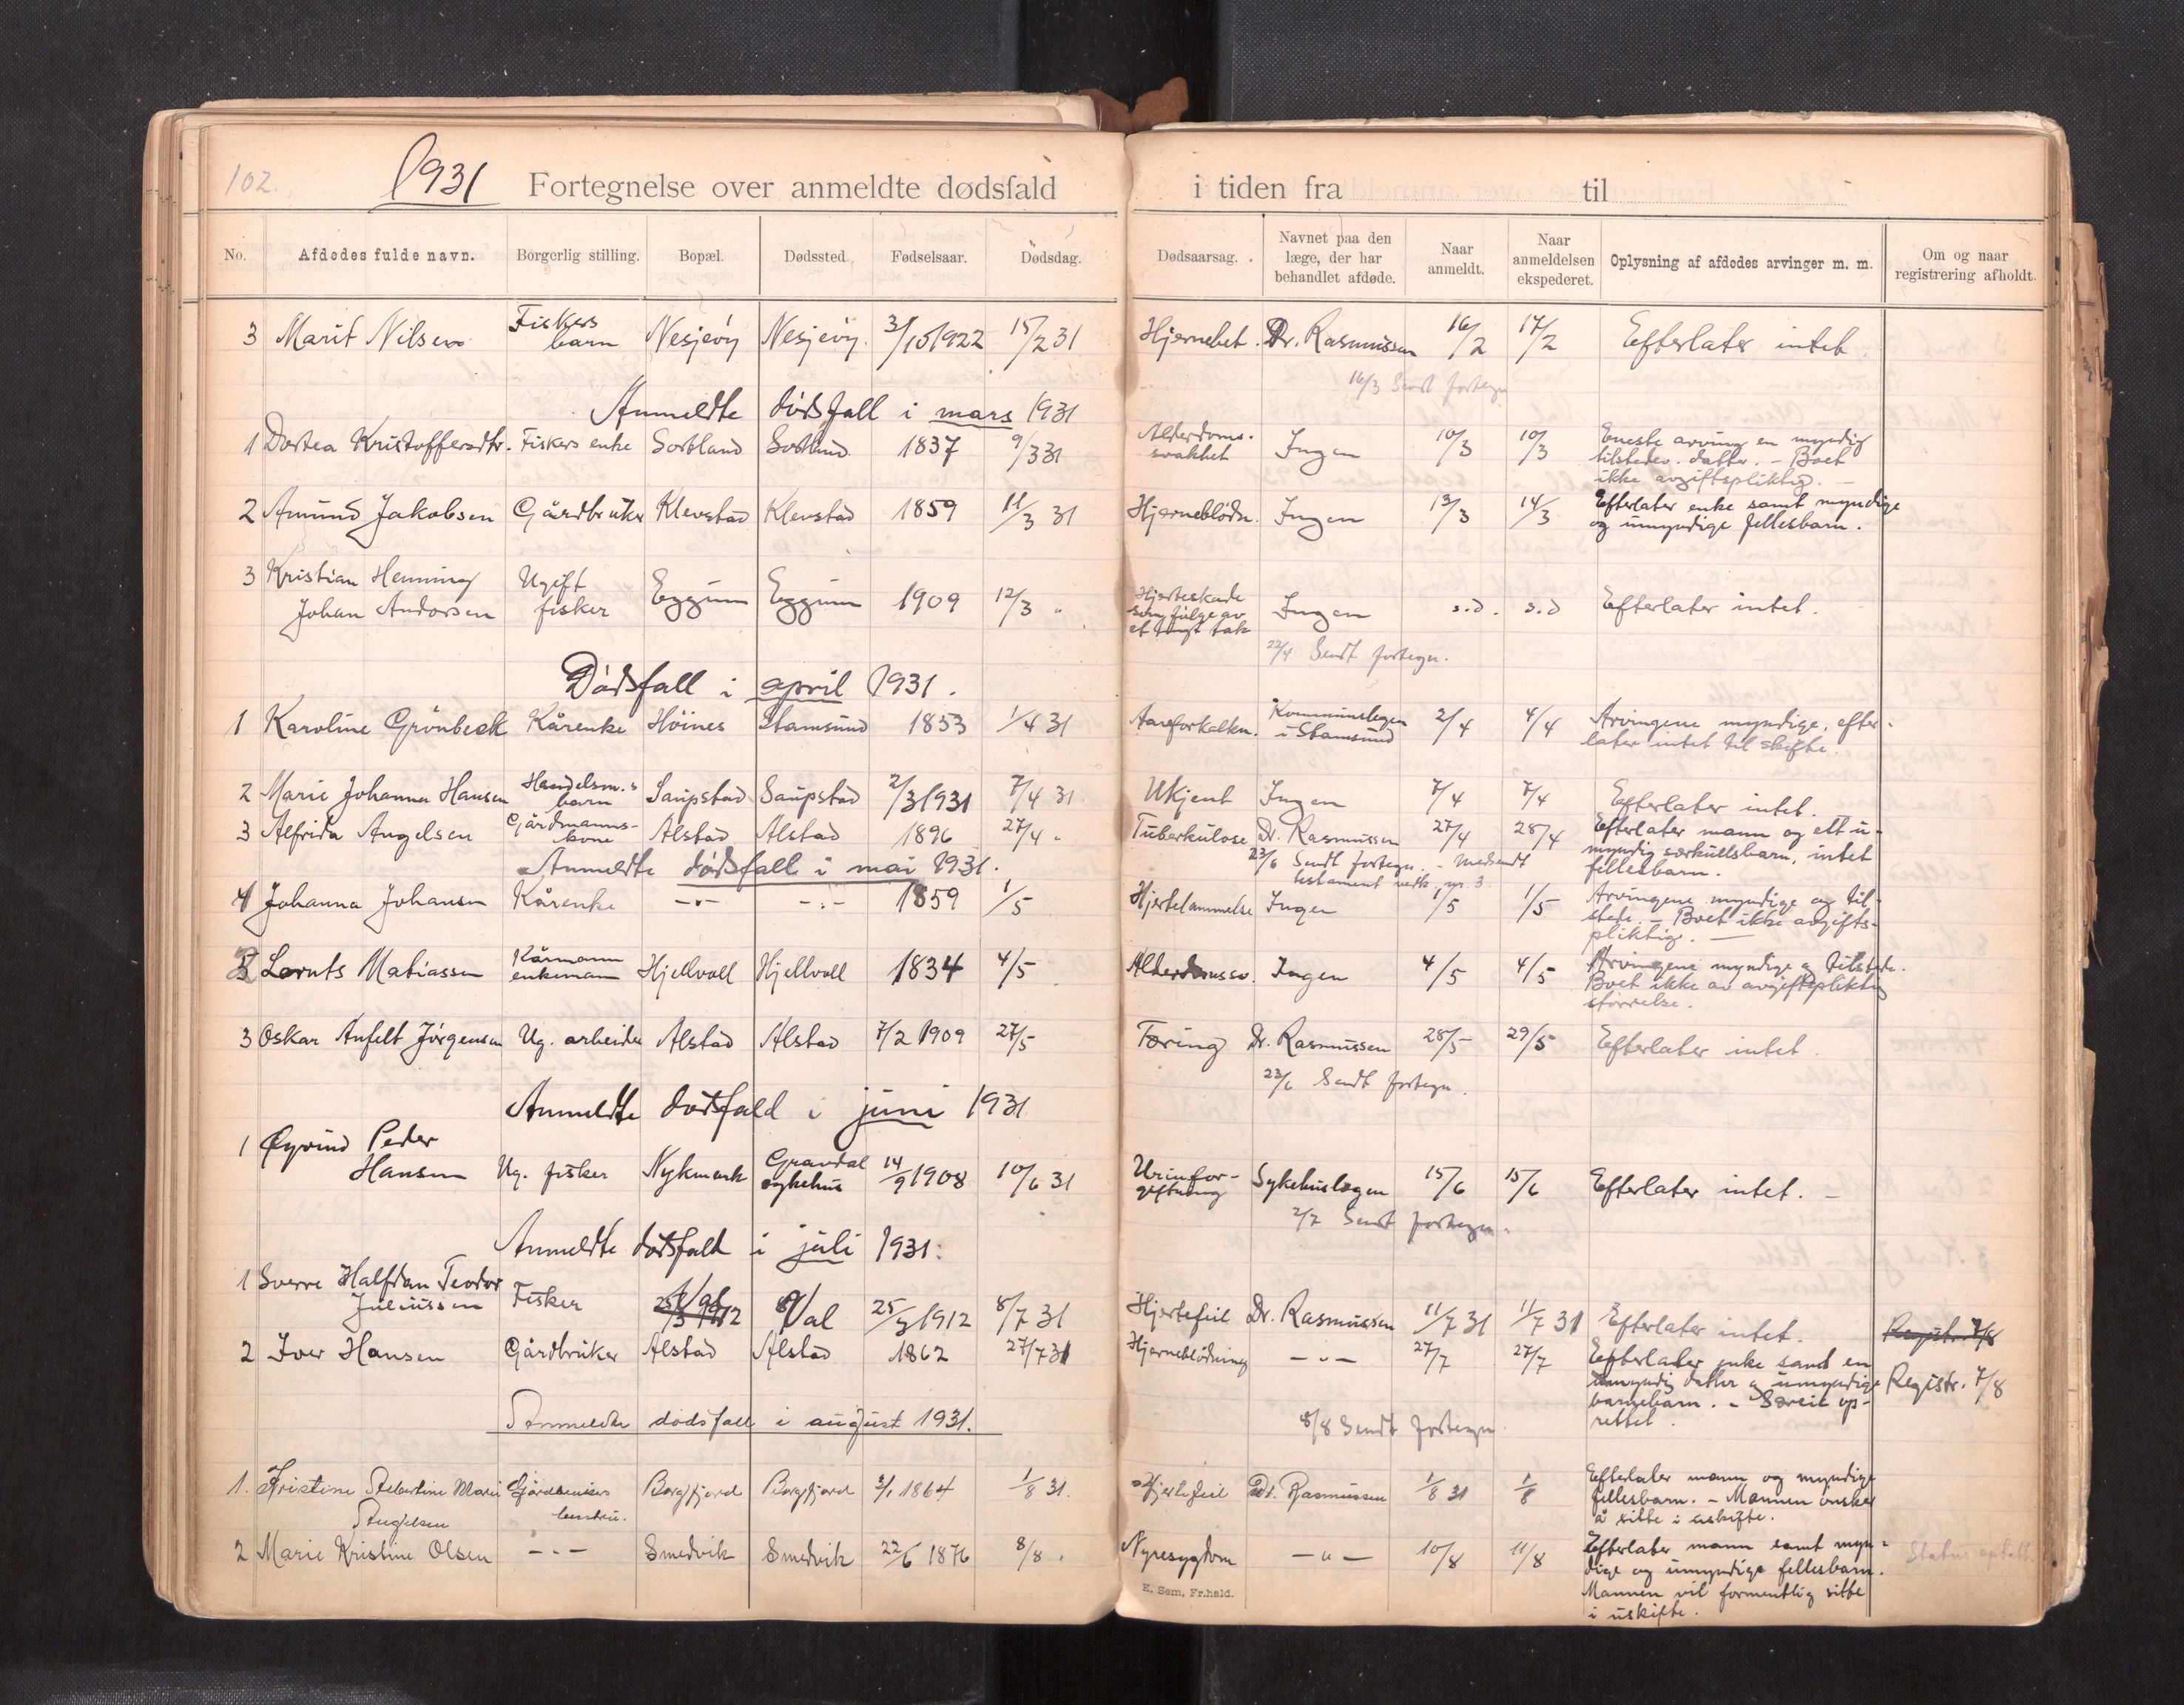 102.
1931 Fortegnelse over anmeldte dødsfald i tiden fra til
No. Afdødes fulde navn. Borgerlig stilling. Bopæl. Dødssted. Fødselsaar. Dødsdag. Dødsaarsag. Navnet paa den læge, der har behandlet afdøde. Naar anmeldt. Naar anmeldelsen ekspederet. Oplysning af afdødes arvinger m. m. Om og naar registrering afholdt.
3 Marit Nilsen Fiskers barn Nesjeöy Nesjeöy 3/10 1922 15/2 31 Hjernebet. Dr. Rasmussen 16/2 17/2 Efterlater intet.
16/3 Sendt fortegn
Anmeldte dödsfall i mars 1931
1 Dortea Kristoffersdtr. Fiskers enke Sortland Sortland 1837 9/3 31 Alderdoms-svakhet Ingen 10/3 10/3 Eneste arving en myndig tilstedev. datter. - Boet ikke avgiftspliktig. -
2 Amund Jakobsen Gårdbruker Klevstad Klevstad 1859 11/3 31 Hjerneblödn. Ingen 13/3 14/3 Efterlater enke samt myndige og umyndige fellesbarn.
3 Kristian Henning Johan Andorsen Ugift fisker Eggum Eggum 1909 12/3 " Hjerteskade som fölge av et tungt tak Ingen s.d. s.d Efterlater intet.
22/4 Sendt fortegn.
Dödsfall i april 1931.
1 Karoline Grönbeck Kårenke Höines Stamsund 1853 1/4 31 Aareforkalkn. Kommunelegen i Stamsund 2/4 4/4 Arvingene myndige, efterlater intet til skifte.
2 Marie Johanna Hansen Handelsm.s barn Saupstad Saupstad 2/3 1931 7/4 31 Ukjent Ingen 7/4 7/4 Efterlater intet.
3 Alfrida Angelsen Gårdmanns-kone Alstad Alstad 1896 27/4 " Tuberkulose Dr. Rasmussen 27/4 28/4 Efterlater mann og ett umyndig særkullsbarn, intet fellesbarn.
23/6 Sendt fortegn. - Medsendt testament vedk. nr. 3.
Anmeldte dödsfall i mai 1931.
1 Johanna Johansen Kårenke -"- -"- 1859 1/5 Hjertelammelse Ingen 1/5 1/5 Arvingene myndige og tilstede. - Boet ikke avgiftspliktig. -
2 Lornts Matiassen Kårmann enkemann Hjellvoll Hjellvoll 1834 4/5 Alderdomssv. Ingen 4/5 4/5 Arvingene myndige og tilstede. Boet ikke av avgiftspliktig störrelse.
3 Oskar Anfelt Jörgensen Ug. arbeider Alstad Alstad 7/2 1909 27/5 Tæring Dr. Rasmussen 28/5 29/5 Efterlater intet.
23/6 Sendt fortegn.
Anmeldte dödsfald i juni 1931
1 Øyvind Peder Hansen Ug. fisker Nykmark Gravdal sykehus 14/9 1908 10/6 31 Urinforgiftning Sykehuslegen 15/6 15/6 Efterlater intet. -
2/7 Sendt fortegn.
Anmeldte dödsfald i juli 1931.
1 Sverre Halfdan Teodor Juliussen Fisker Val Val 25/3 1912 8/7 31 Hjertefeil Dr. Rasmussen 11/7 31 11/7 31 Efterlater intet. Registr. 7/8
2 Iver Hansen Gårdbruker Alstad Alstad 1862 27/7 31 Hjerneblödning -"- 27/7 27/7 Efterlater enke samt en umyndig datter og umyndige barnebarn. - Særeie oprettet. Registr. 7/8
8/8 Sendt fortegn
Anmeldte dödsfall i august 1931.
1. Kristine Albertine Marie Angelsen Gårdbrukers hustru. Borgfjord Borgfjord 3/1 1864 1/8 31. Hjertefeil Dr. Rasmussen 1/8 31 1/8 Efterlater mann og myndige fellesbarn. - Mannen önsker å sitte i uskifte.
2 Marie Kristine Olsen -"- Smedvik Smedvik 22/6 1876 8/8. Nyresygdom -"- 10/8 11/8 Efterlater mann samt myndige og umyndige fellesbarn. Mannen vil formentlig sitte i uskifte.
E. Sem, Fr.hald.